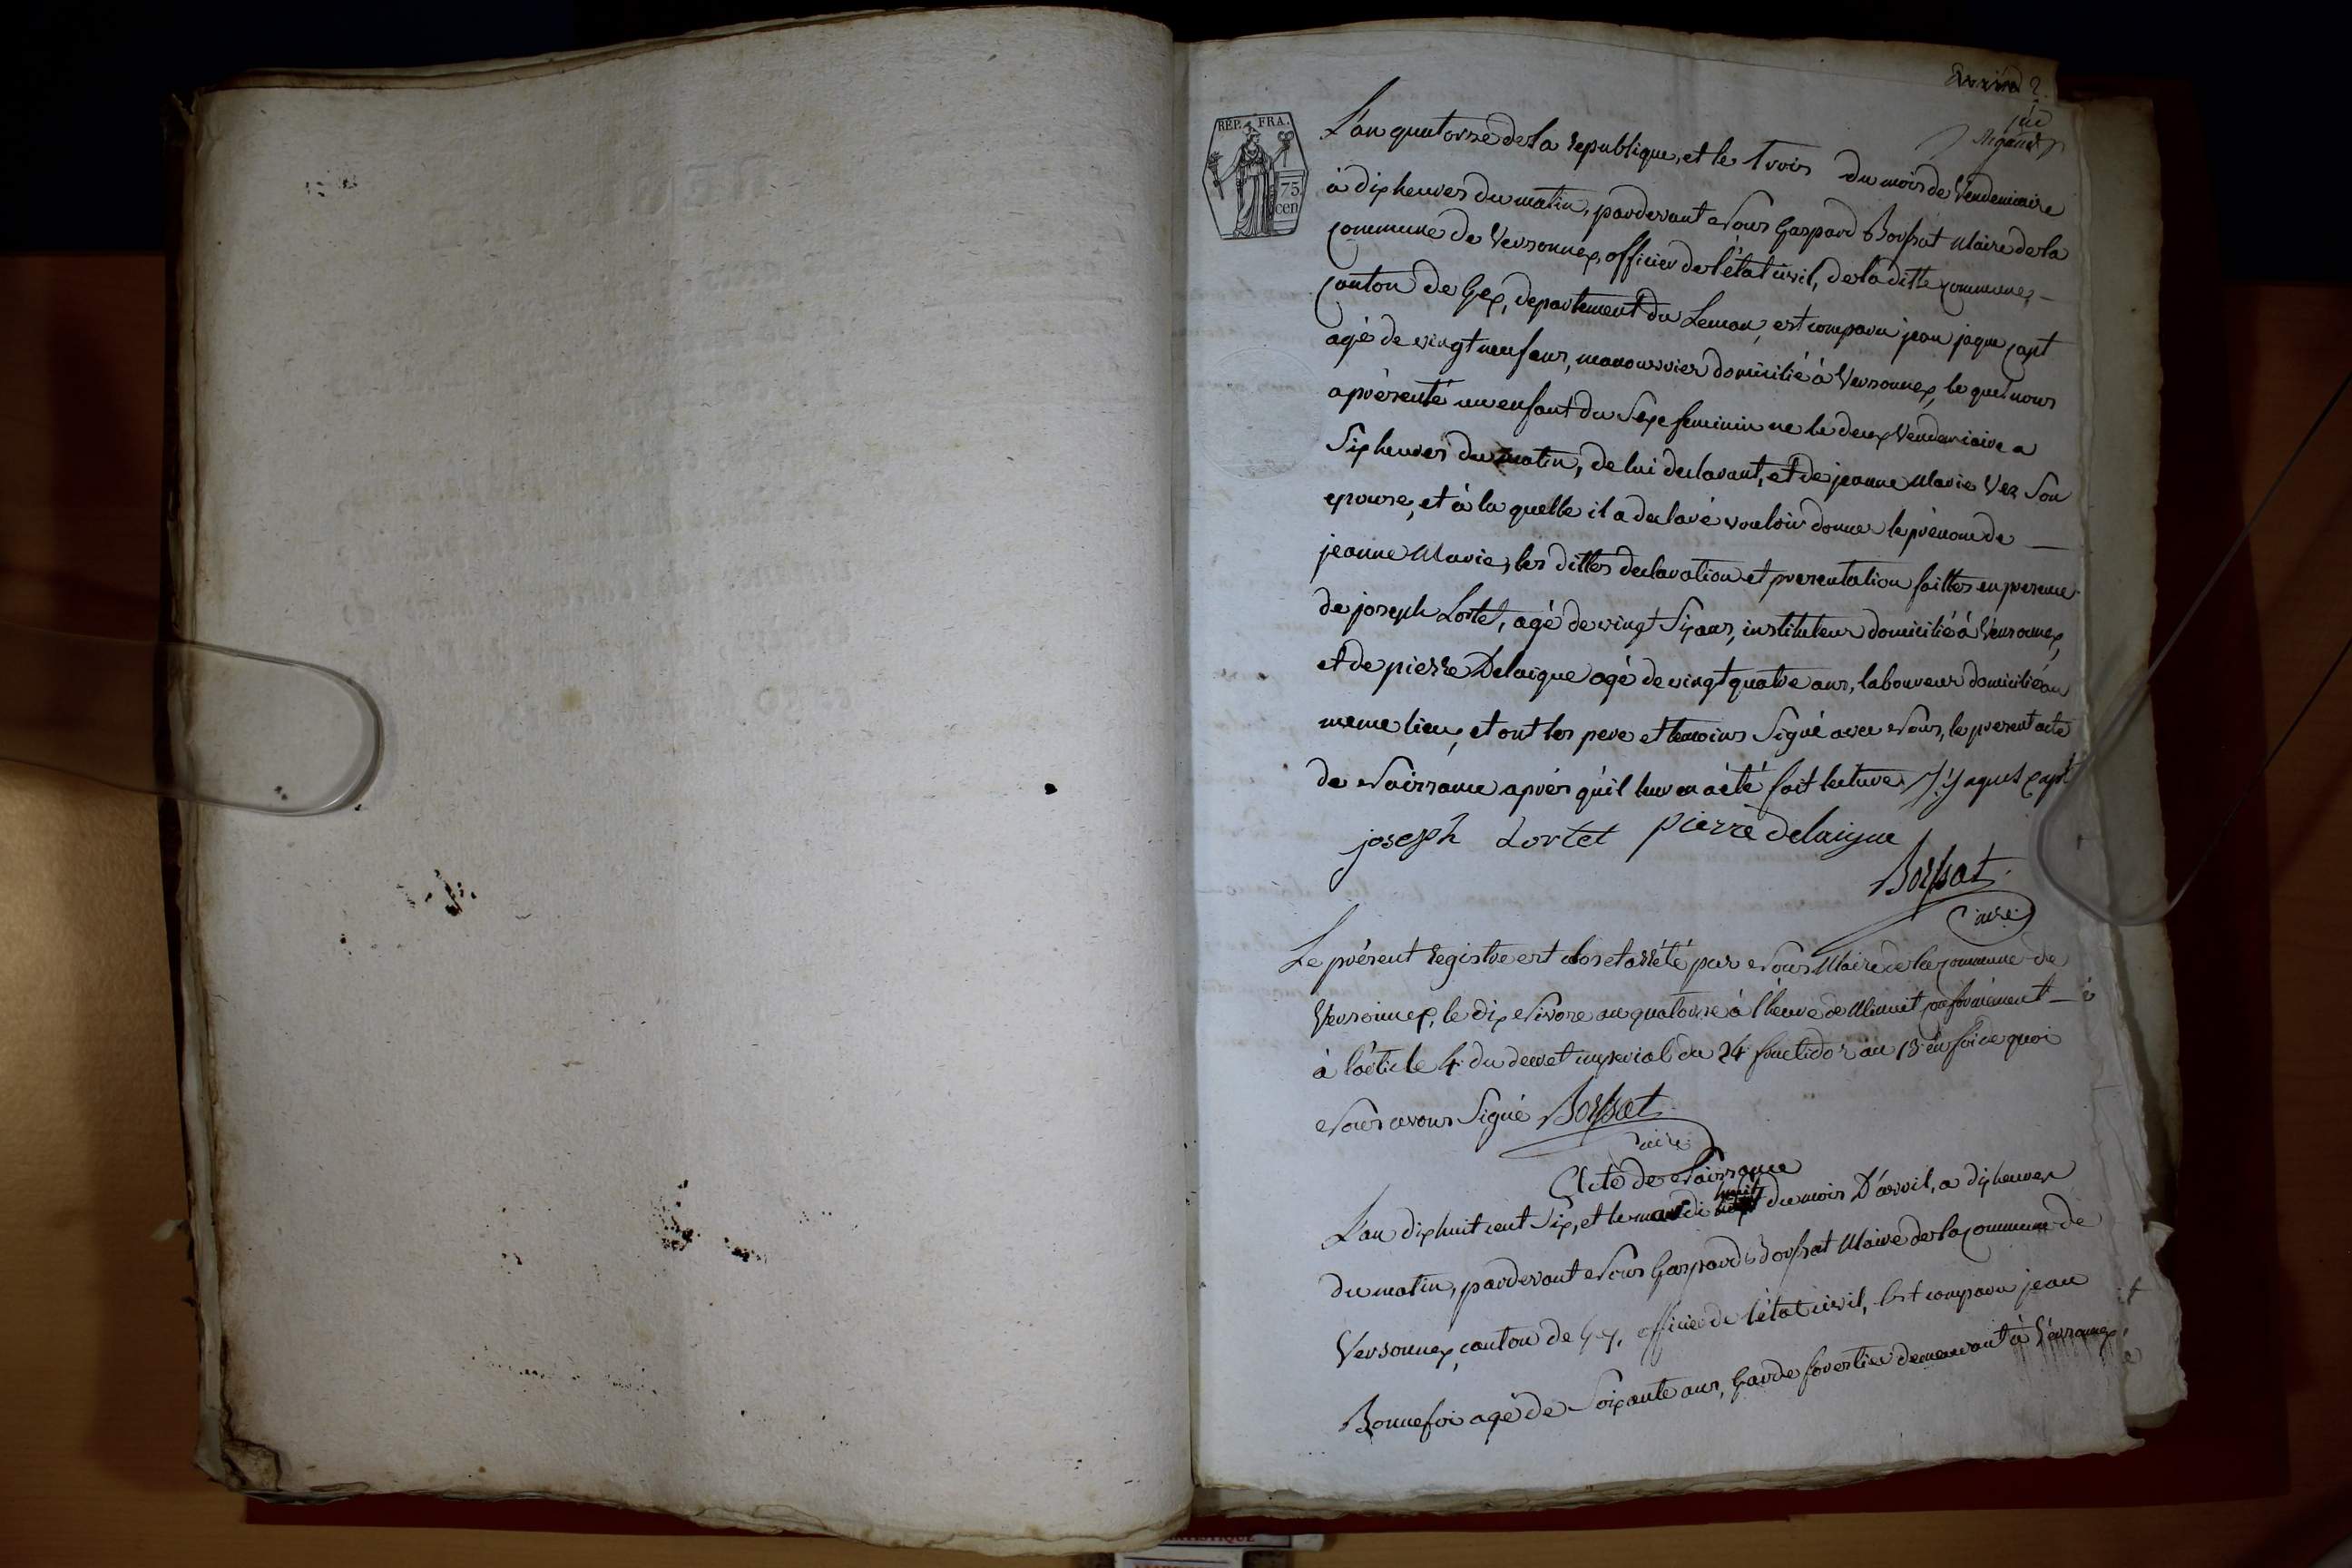 REP. FRA.
75
cen
L'an quatorze de la republique, et le trois du mois de Vendemiaire
à dix heures du matin, pardevant Nous Gaspard Borssat Maire de la
commune de Versonnex, officier de l'état civil, de la ditte commune, —
canton de Gex, departement du Leman, est comparu jean jaque capt
agé de vingt neuf ans, manouvrier domicilié à Versonnex, le quel nous
a présenté un enfant du Sexe feminin né le deux Vendemiaire a
Six heures du matin, de lui declarant, et de jeanne Marie Vez Son
epouse, et à la quelle il a declaré vouloir donner le prénom de —
jeanne Marie, les dittes declaration et presentation faittes en presence
de joseph Lortet, agé de vingt Six ans, instituteur domicilié à Versonnex,
et de pierre Delaigue agé de vingt quatre ans, laboureur domicilié au
meme lieu, et ont les pere et temoins Signé avec Nous, le present acte
de Naissance aprés qu'il leur en a été fait lecture. J. Jaques Capt
joseph Lortet pierre delaigue
Borssat
Maire
Le présent registre est clos et arrété par Nous Maire de la commune de
Versonnex, le dix Nivose an quatorze à l'heure de Minuit conformement —
à l'article 4 du decret imperial du 24 fructidor an 13 en foi de quoi
Nous avons Signé Borssat
Maire
Acte de Naissance
L'an dix huit cent Six, et le mardi huit du mois D'avril, a dix heures
du matin, pardevant Nous Gaspard Borssat Maire de la commune de
Versonnex, canton de Gex, officier de l'état civil, Est comparu jean
Bonnefoi agé de Soixante ans, Garde forestier demeurant à Versonnex,